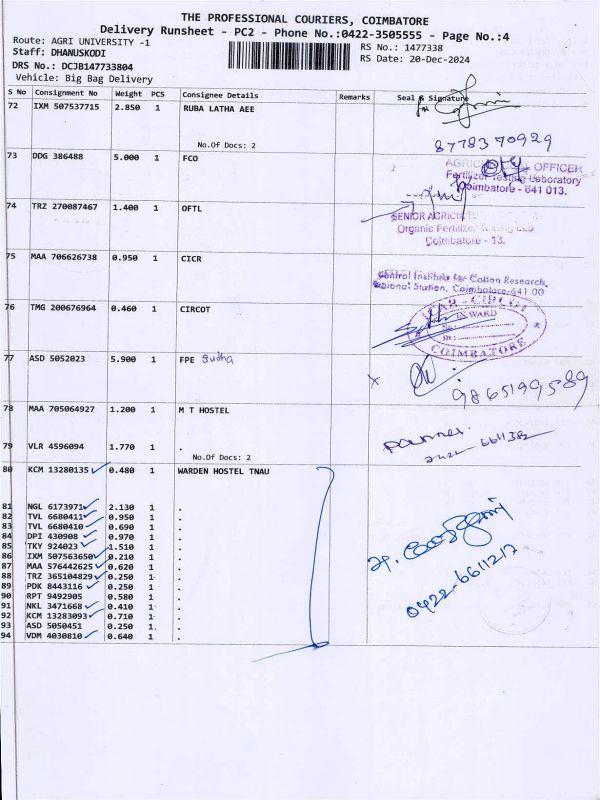 THE PROFESSIONAL COURIERS, COIMBATORE
Delivery Runsheet - PC2 - Phone No.:0422-3505555 - Page No.:4
Route: AGRI UNIVERSITY -1 RS No.: 1477338
Staff: DHANUSKODI RS Date: 20-Dec-2024
DRS No.: DCJB147733804
Vehicle: Big Bag Delivery
S No Consignment No Weight PCS Consignee Details Remarks Seal & Signature
72 IXM 507537715 2.850 1 RUBA LATHA AEE
No.Of Docs: 2
8778370929
73 DDG 386488 5.000 1 FCO
AGRIC OFFICER
Fertilizer Testing Laboratory
Coimbatore - 641 013.
74 TRZ 270087467 1.400 1 OFTL
SENIOR AGRICULTU
Organic Fertilizer Testing Lab
Coimbatore - 13.
75 MAA 706626738 0.950 1 CICR
Central Institute for Cotton Research,
Regional Station, Coimbatore-641 00
76 TMG 200676964 0.460 1 CIRCOT
INWARD
No.:
Dt.:
COIMBATORE
77 ASD 5052023 5.900 1 FPE Sudha
X 9865199589
78 MAA 705064927 1.200 1 M T HOSTEL
79 VLR 4596094 1.770 1 .
No.Of Docs: 2
80 KCM 13280135 ✓ 0.480 1 WARDEN HOSTEL TNAU
81 NGL 6173971 ✓ 2.130 1 .
82 TVL 6680411 ✓ 0.950 1 .
83 TVL 6680410 ✓ 0.690 1 .
84 DPI 430908 ✓ 0.970 1 .
85 TKY 924023 ✓ 1.510 1 .
86 IXM 507563650 ✓ 0.210 1 .
87 MAA 576442625 ✓ 0.620 1 .
88 TRZ 365104829 ✓ 0.250 1 .
89 PDK 8443116 ✓ 0.250 1 .
90 RPT 9492905 0.580 1 .
91 NKL 3471668 ✓ 0.410 1 .
92 KCM 13283093 ✓ 0.710 1 .
93 ASD 5050451 0.250 1 .
94 VDM 4030810 ✓ 0.640 1 .
0422-6611217